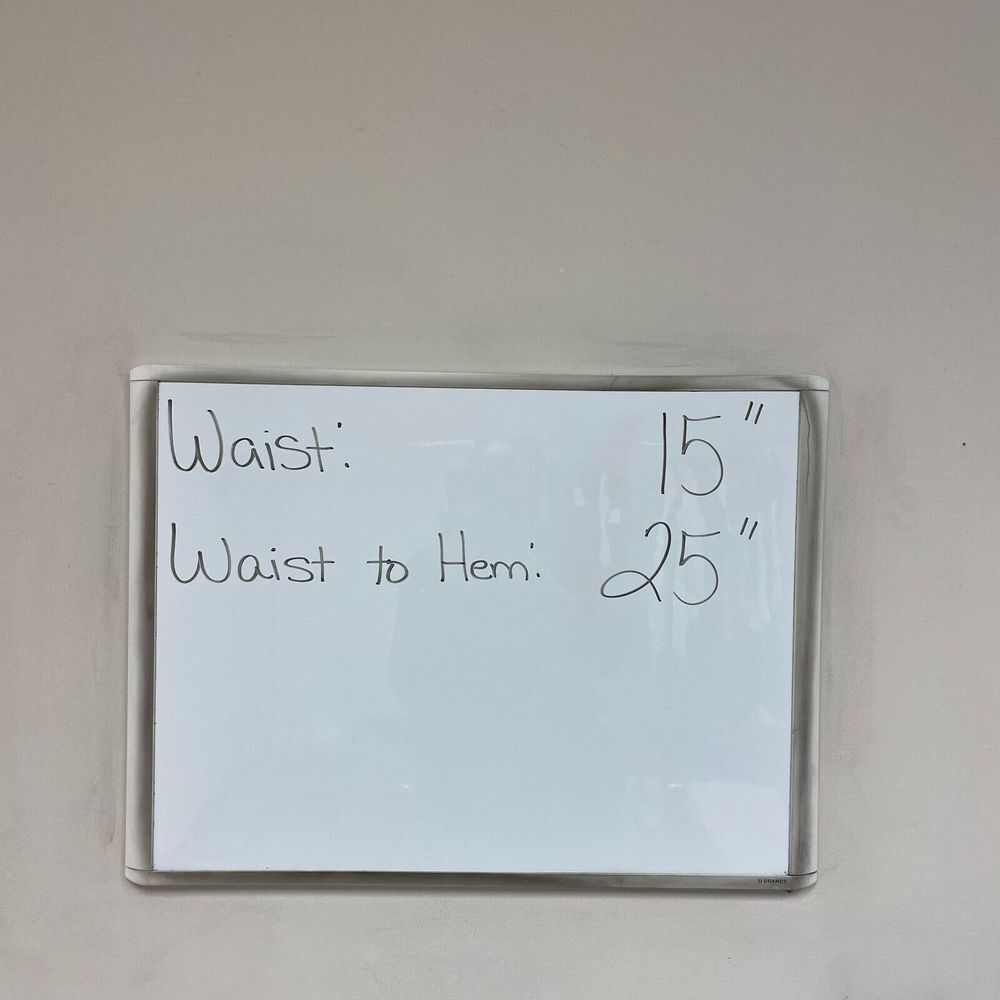 Waist: 15"
Waist to Hem: 25"
U BRANDS